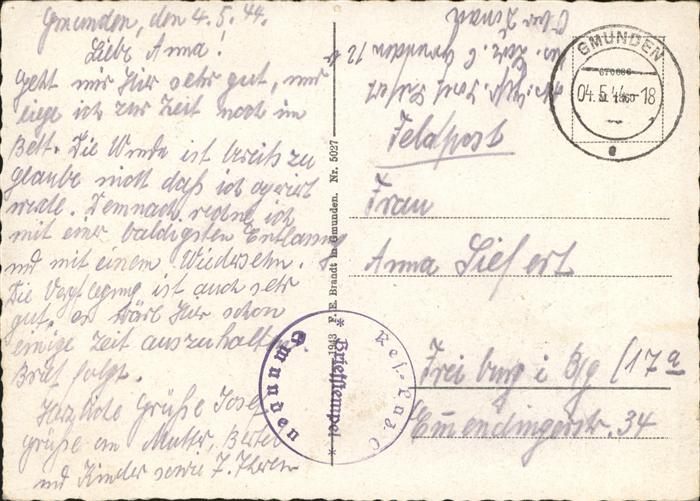 Gmunden, den 4.5.44.
Liebe Anna!
geht mir hier sehr gut, nur
liege ich zur Zeit noch im
Bett. Die Wunde ist bereits zu
glaube nicht daß ich operiert
werde. Demnach rechne ich
mit einer baldigsten Entlassung
und mit einem Wiedersehn.
Die Verpflegung ist auch sehr
gut, es wäre hier schon
einige Zeit auszuhalten
Brief folgt.
Herzliche Grüße Josef
grüße an Mutter,
und Kinder sowie
F. E. Brandt in Gmunden. Nr. 5027
1943
Gmunden
* Briefstempel *
Res.-Laz.
Gmunden 12
Ober Donau
GMUNDEN
04.5.44-18
e
Feldpost
Frau
Anna Siefert
Freiburg i Brg (17a
Emmendingerstr. 34